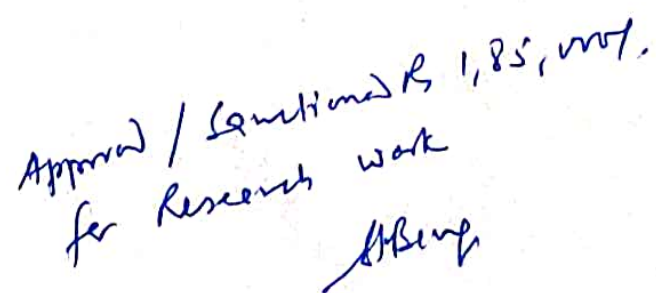 Approved / Sanctioned Rs 1,85,000/.
for Research work